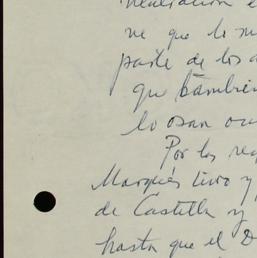 ne que le
parte de los
que también
lo osan
Por los
Marqués tuvo y
de Castilla y
hasta que el D